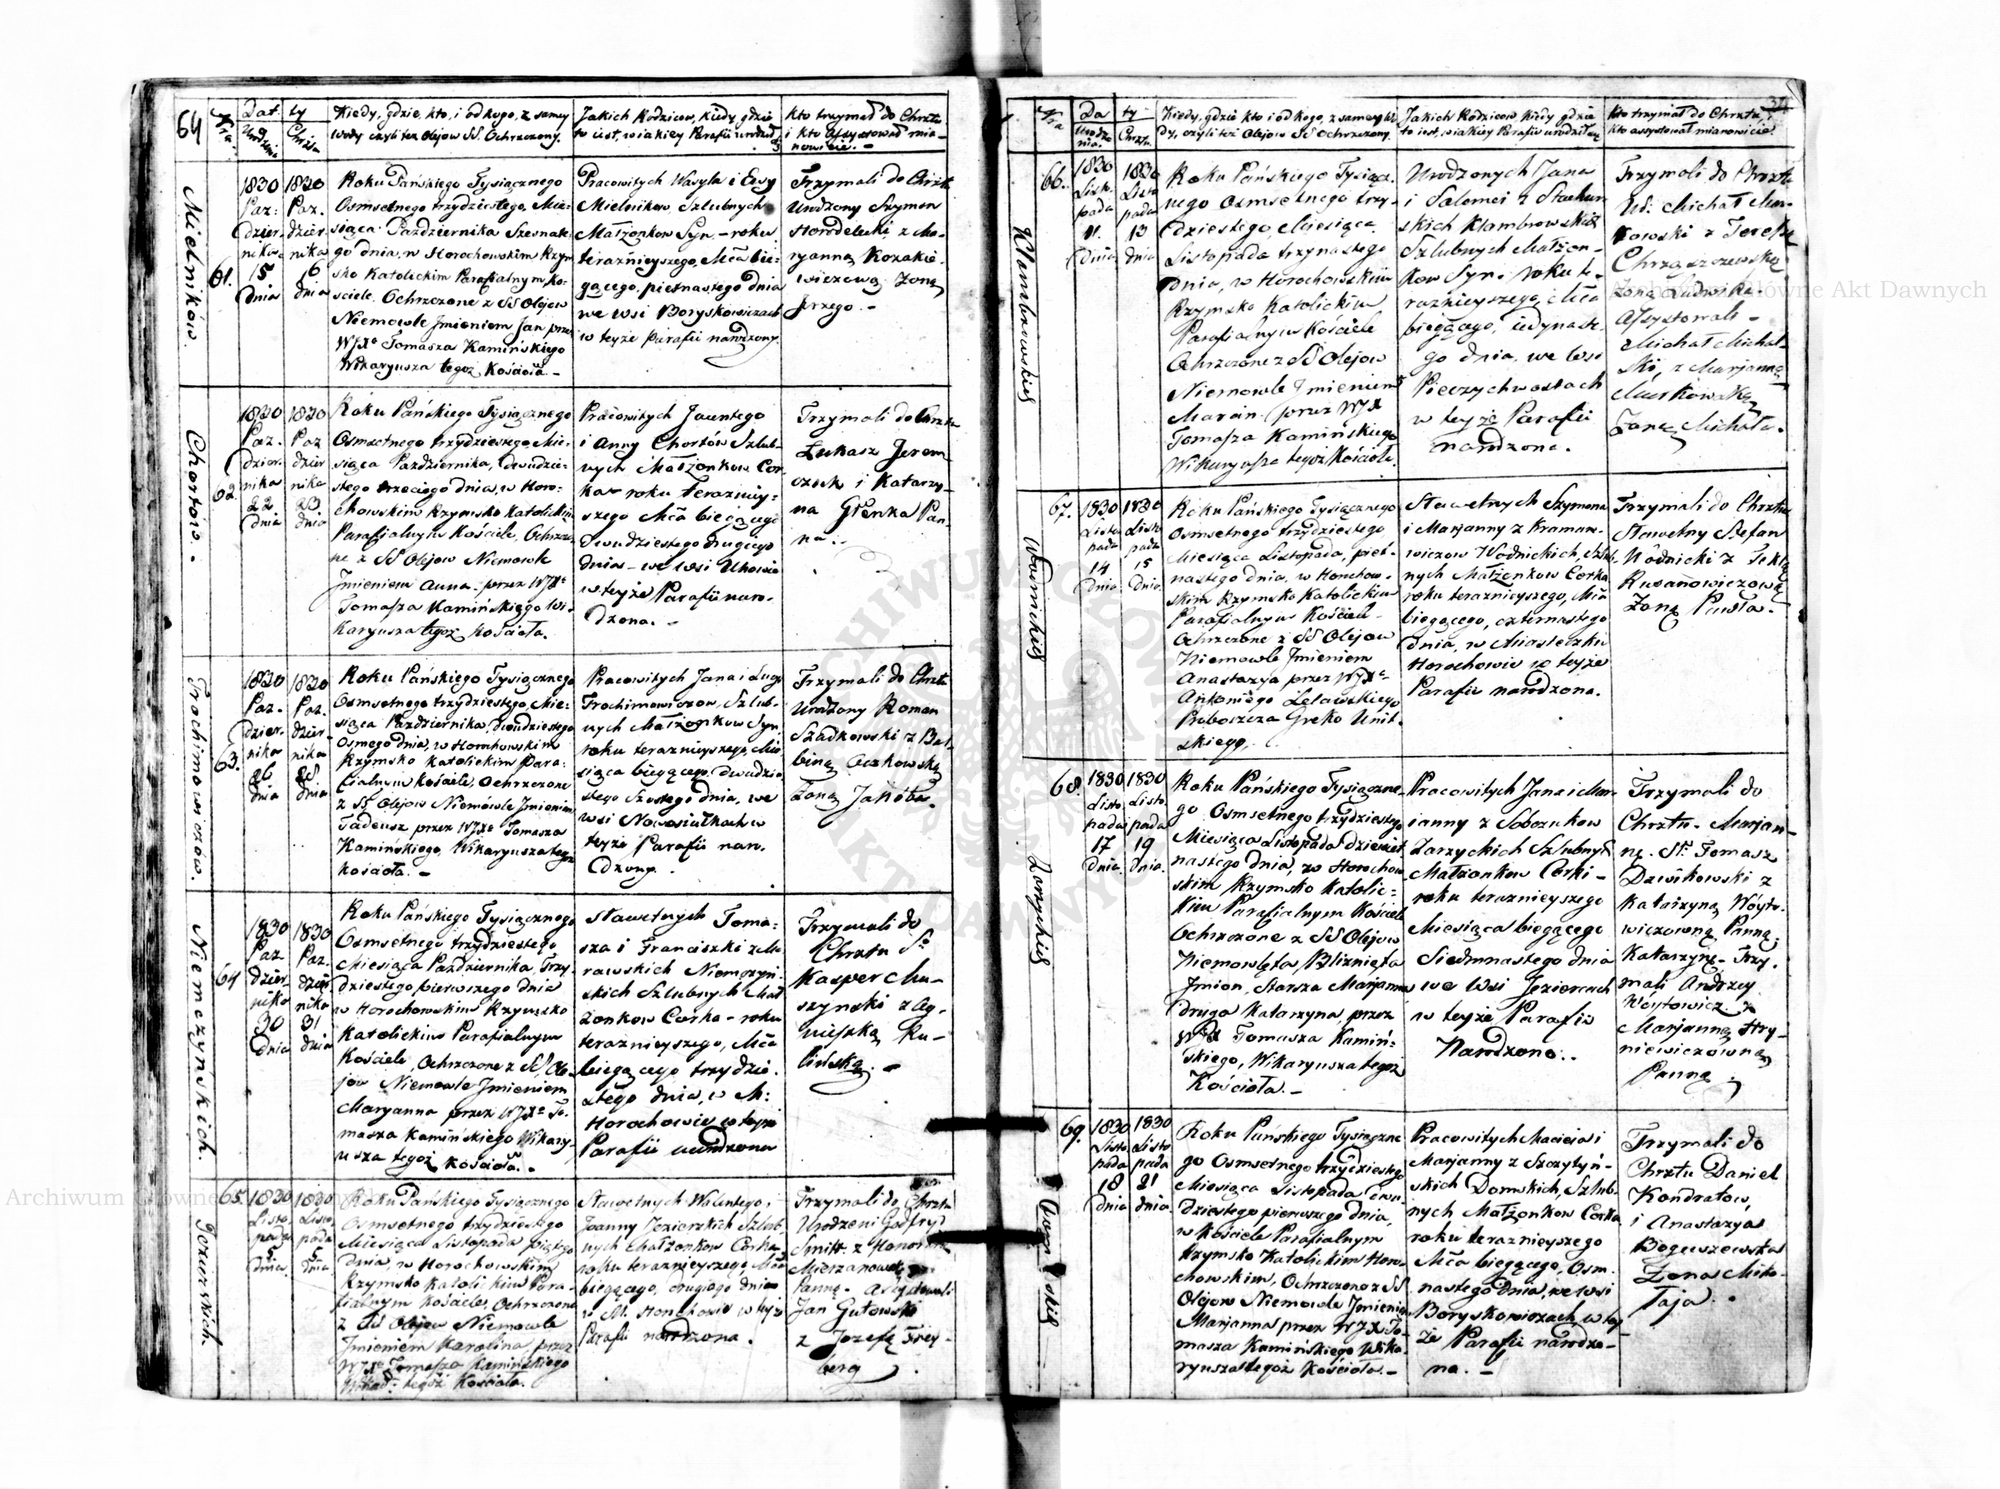 64
Nra.
Daty
Urodzenia
Chrztu
Kiedy, gdzie, kto, i od kogo, z samey
wody czyli też Olejow SS Ochrzczony.
Jakich Rodzicow, kiedy, gdzie
to iest, w iakiey Parafii urodził
kto trzymał do Chrztu
i kto assystował mia-
nowicie. -
Mielników.
61.
1830
Paz-
dzier-
nika
15
dnia
1830
Paz-
dzier-
nika
16
dnia
Roku Pańskiego Tysiącznego
Osmsetnego trzydziestego, Mie-
siąca Pazdziernika Szesnaste
go dnia, w Horochowskim Rzym
sko Katolickim Parafialnym Ko-
ściele. Ochrzczone z SS Olejow
Niemowle Jmieniem Jan przez
WJXa Tomasza Kamińskiego
Wikaryusza tegoż Kościoła -
Pracowitych Wasyla i Ewy
Mielnikow Szlubnych
Małżonkow Syn - roku
teraznieyszego, Mca bie-
gącego, pietnastego dnia
we wsi Boryskowiczach
w teyże Parafii narodzony.
Trzymali do Chrztu
Urodzony Szymon
Horodelecki z Ma-
ryanną Kozakie-
wiczową Zoną
Jerzego. -
Chortów.
62.
1830
Paz-
dzier-
nika
22.
dnia
1830
Paz
dzier
nika
23
dnia
Roku Pańskiego Tysiącznego
Osmsetnego trzydziestego, Mie-
siąca Pazdziernika, dwudzie-
stego trzeciego dnia, w Horo-
chowskim Rzymsko Katolickim
Parafialnym Kościele, Ochrzczo-
ne z SS Olejow Niemowle
Jmieniem Anna - przez WJXa
Tomasza Kamińskiego Wi-
karyusza tegoż Kościoła.
Pracowitych Jacentego
i Anny Chortów Szlub-
nych Małżonkow Cor-
ka - roku Teraznieyszego
Mca biegącego
Dwudziestego drugiego
dnia - we wsi Uhowie
w teyże Parafii naro-
dzona. -
Trzymali do Chrztu
Łukasz Jerem-
czuk i Katarzy-
na Grenka Pan-
na. -
Trochimowiczów.
63.
1830
Paz-
dzier-
nika
26
dnia
1830
Paz-
dzier-
nika
28
dnia
Roku Pańskiego Tysiącznego
Osmsetnego trzydziestego, Mie-
siąca Pazdziernika, dwudziestego
Osmego dnia, w Horochowskim
Rzymsko Katolickim Para-
fialnym Kościele, Ochrzczone
z SS Olejow Niemowle Jmieniem
Tadeusz przez WJXa Tomasza
Kamińskiego, Wikaryusza tegoż
Kościoła. -
Pracowitych Jana i Łucyi
Trochimowiczow, Szlub-
nych Małżonkow Syn,
roku teraznieyszego, Mie-
siąca biegącego, dwudzie-
stego Szostego dnia, we
wsi Nowosiułkach w
teyże Parafii naro-
dzony.
Trzymali do Chrztu
Urodzony Roman
Szadkowski z Bal-
biną
Zoną Jakóba.
Niemczyńskich.
64
1830
Paz
dzier-
nika
30
dnia
1830
Paz-
dzier-
nika
31
dnia
Roku Pańskiego Tysiącznego
Osmsetnego trzydziestego
Miesiąca Pazdziernika, Trzy-
dziestego pierwszego dnia
w Horochowskim Rzymsko
Katolickim Parafialnym
Kościele, Ochrzczone z SS Ole-
jow Niemowle Jmieniem
Maryanna przez WJXa To-
masza Kamińskiego Wikary-
usza tegoż Kościoła. -
Sławetnych Toma-
sza i Franciszki z Mu-
rawskich Niemczyń-
skich Szlubnych Mał-
żonkow Corka - roku
teraznieyszego, Mca
biegącego trzydzie-
stego dnia, w M:
Horochowie w teyże
Parafii narodzona
Trzymali do
Chrztu St
Kasper Mu-
szyński z Ag-
nieszką Ku-
lińską. -
Jezierskich.
65.
1830
Listo-
pada
5
dnia
1830
Listo-
pada
5
dnia
Roku Pańskiego Tysiącznego
Osmsetnego trzydziestego
Miesiąca Listopada, piątego
dnia, w Horochowskim
Rzymsko Katolickim Para-
fialnym Kościele, Ochrzczone
z SS Olejow Niemowle
Jmieniem Karolina, przez
WJXa Tomasza Kamińskiego
Wikar: tegoż Kościoła.
Sławetnych Walentego,
Joanny Jezierskich Szlub-
nych Małżonkow Corka,
roku teraznieyszego, Mca
biegącego, drugiego dnia
w M. Horochowie w teyże
Parafii narodzona.
Trzymali do Chrztu
Urodzeni Godfryd
Smitt z Honoratą
Panną - Assystowali
Jan Gutowski
z Jozefą Frey-
berg
Nra
Daty
Urodze-
nia.
Chrztu.
Kiedy, gdzie kto i od kogo, z samey Wo-
dy, czyli też Olejow SS Ochrzczony.
Jakich Rodzicow kiedy gdzie
to iest, w iakiey Parafii urodził się
Kto trzymał do Chrztu,
kto assystował mianowicie.
Klambrowskich
66.
1830
Listo-
pada
11.
dnia
1830
Listo
pada
13
dnia
Roku Pańskiego Tysiącz-
nego Osmsetnego trzy-
dziestego, Miesiąca
Listopada trzynastego
dnia, w Horochowskim
Rzymsko Katolickim
Parafialnym Kościele
Ochrzczone z SS Olejow
Niemowle Jmieniem
Marcin - przez WJX
Tomasza Kamińskiego
Wikaryusza tegoż Kościoła.
Urodzonych Jana
i Salomei z Stachur-
skich Klambrowskich
Szlubnych Małżon-
kow Syn - roku te-
raznieyszego, Mca
biegącego, iedynaste-
go dnia, we wsi
Pieczychwostach
w teyże Parafii
narodzone.
Trzymali do Chrztu
Ur. Michał Mar-
kowski z Teressą
Chrząszczewską
Zoną Ludwika.
Assystowali -
Michał Michal-
ski, z Marjanną
Markowską
Zoną Michała.
Wodnickich
67.
1830
Listo
pada
14
dnia
1830
Listo
pada
15
dnia.
Roku Pańskiego Tysiącznego
Osmsetnego trzydziestego
Miesiąca Listopada, piet-
nastego dnia, w Horochow-
skim Rzymsko Katolickim
Parafialnym Kościele
Ochrzczone z SS Olejow
Niemowle Jmieniem
Anastazya przez WJXa
Antoniego Lelawskiego
Proboszcza Greko Unit-
skiego.
Sławetnych Szymona
i Marjanny z Kramare-
wiczow Wodnickich, Szlub-
nych Małżonkow Corka
roku teraznieyszego, Mca
biegącego, czternastego
dnia, w Miasteczku
Horochowie w teyże
Parafii narodzona.
Trzymali do Chrztu
Sławetny Stefan
Wodnicki z Teklą
Rusanowiczową
Zoną Pawła.
Zarzyckich
68.
1830
Listo-
pada
17
dnia
1830
Listo-
pada
19
dnia.
Roku Pańskiego Tysiączne-
go Osmsetnego trzydziestego
Miesiąca Listopada dziewięt-
nastego dnia, w Horochow-
skim Rzymsko Katolic-
kim Parafialnym Kościele
Ochrzczone z SS Olejow
Niemowlęta Bliznięta
Jmion, Starsza Marjanna
druga Katarzyna, przez
WJX Tomasza Kamiń-
skiego, Wikaryusza tegoż
Kościoła. -
Pracowitych Jana i Mar-
janny z Sobczukow
Zarzyckich Szlubnych
Małżonkow Corki -
roku teraznieyszego
Miesiąca biegącego
Siedmnastego dnia
we wsi Jeziercach
w teyże Parafii
Narodzone. -
Trzymali do
Chrztu - Marjan-
nę - St. Tomasz
Dawikowski z
Katarzyną Wóyto-
wiczowną Panną,
Katarzynę - Trzy-
mali Andrzey
Wóytowicz z
Marjanną Hry-
niewiczowną
Panną.
69.
1830
Listo
pada
18
dnia
1830
Listo
pada
21
dnia.
Roku Pańskiego Tysiączne
go Osmsetnego trzydziestego
Miesiąca Listopada dwu-
dziestego pierwszego dnia,
w Kościele Parafialnym
Rzymsko Katolickim Horo-
chowskim, Ochrzczono z SS
Olejow Niemowle Jmieniem
Marjanna przez WJX To-
masza Kamińskiego Wika-
ryusza tegoż Kościoła. -
Pracowitych Macieja i
Marjanny z Szczytyń-
skich Domskich, Szlub-
nych Małżonkow Corka
roku teraznieyszego
Mca biegącego, Osm-
nastego dnia, we wsi
Boryskowiczach, w tey-
że Parafii narodzo-
na. -
Trzymali do
Chrztu Daniel
Kondratow,
i Anastazya
Boguszewska
Zona Miko-
łaja. -
Archiwum Główne Akt Dawnych
ARCHIWUM GŁÓWNE AKT DAWNYCH